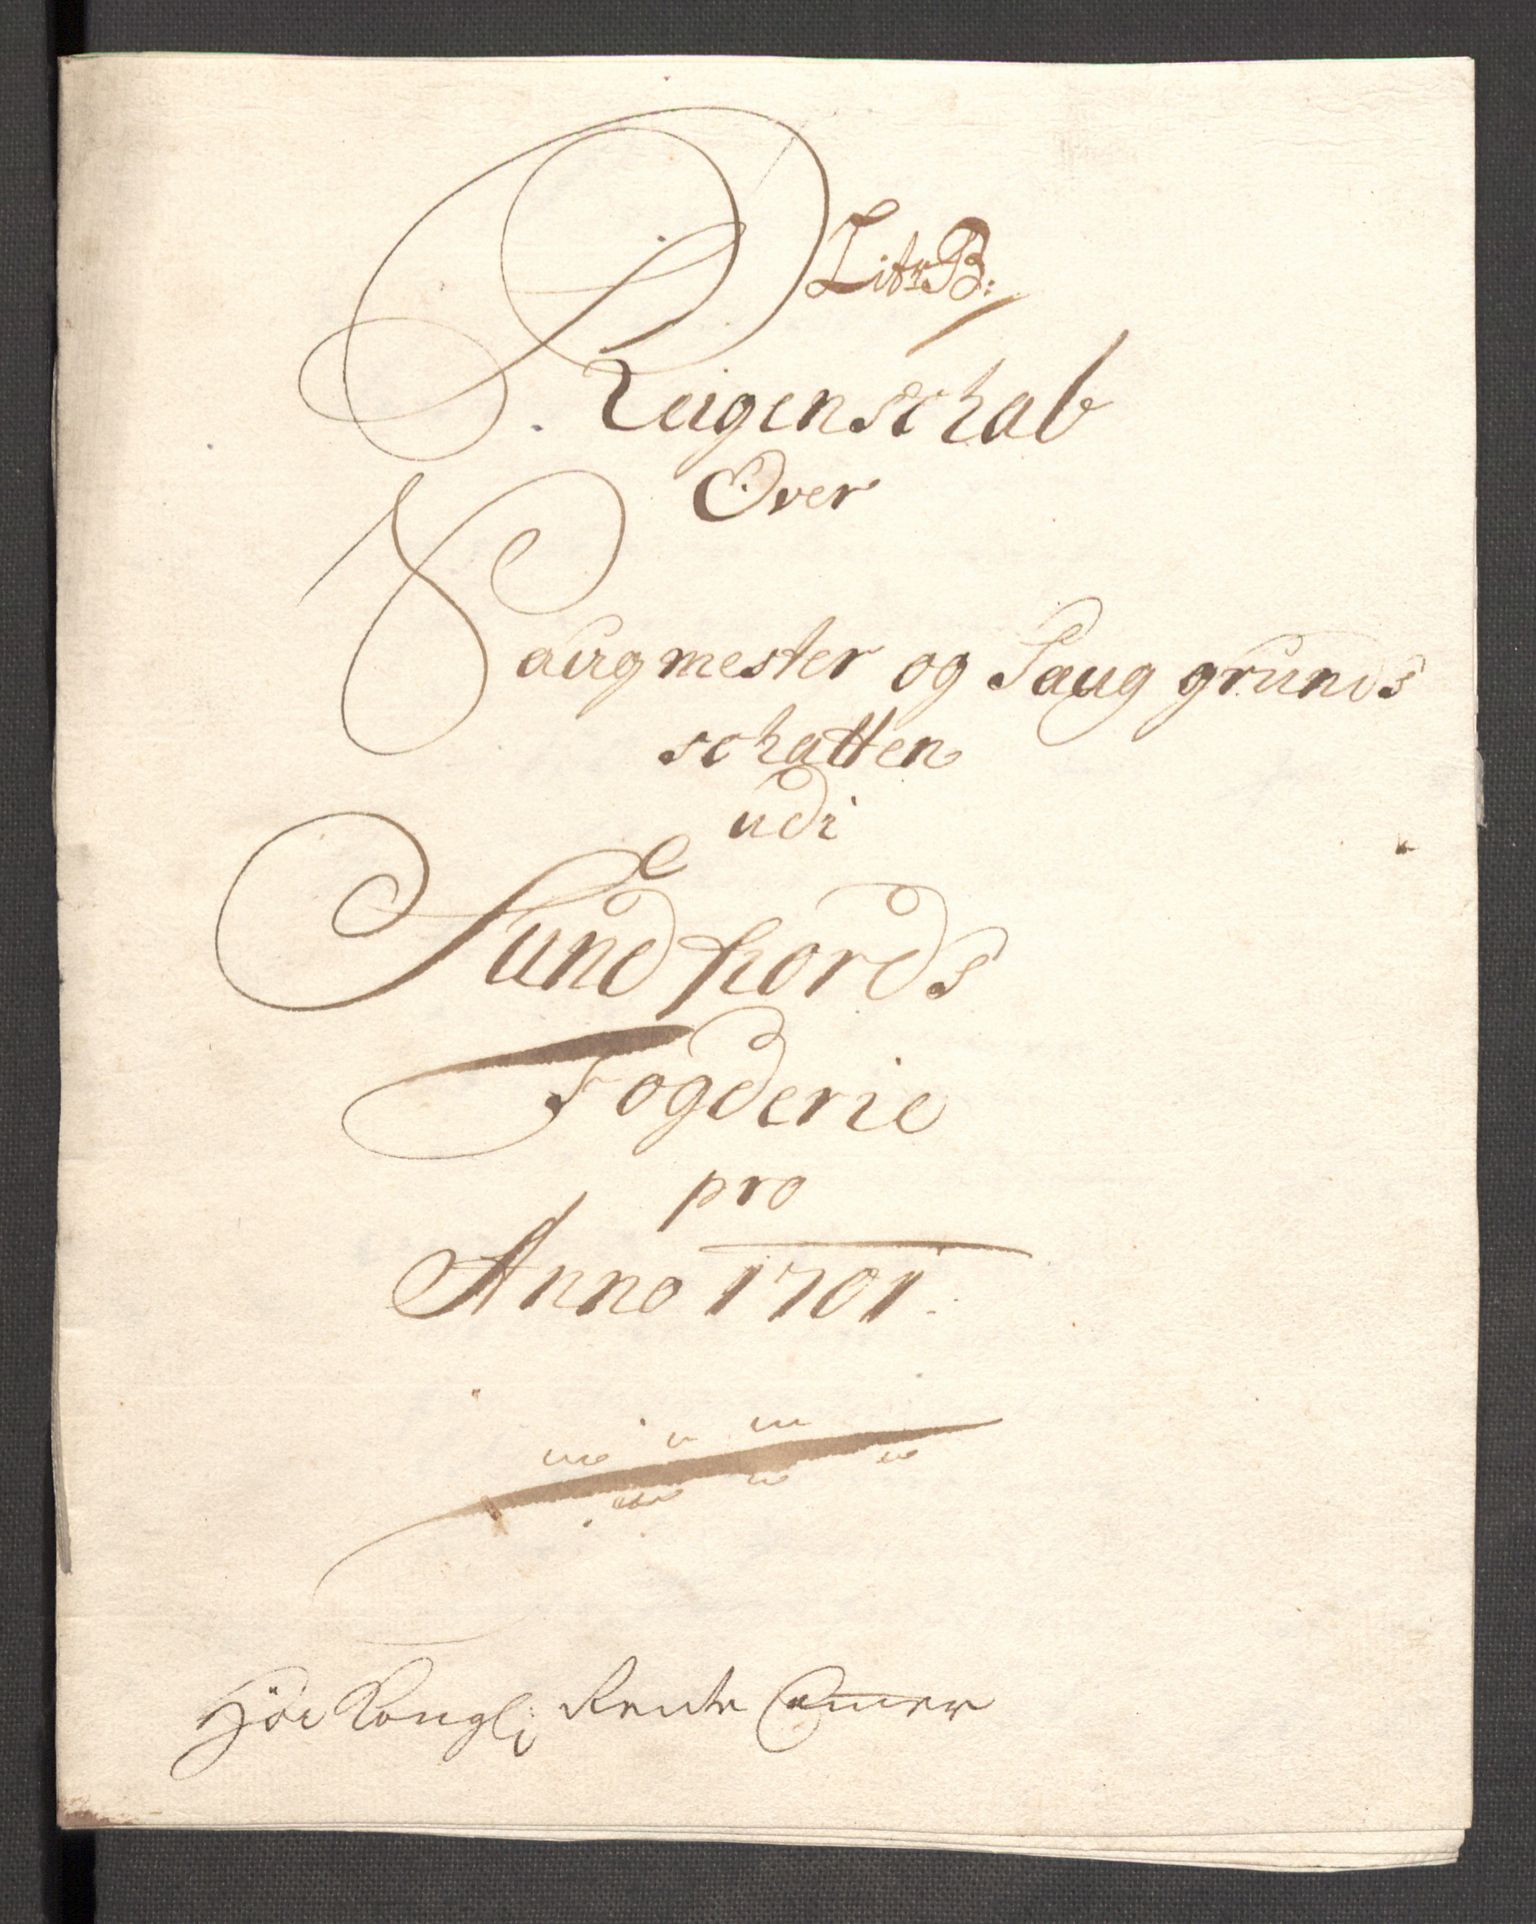 Litr B:
Reigenschab
Over
Saugmester og Saug grunds
schatten
udi
Sundfiords
Fogderie
pro
Anno 1701.
Kongl: Rente Camer